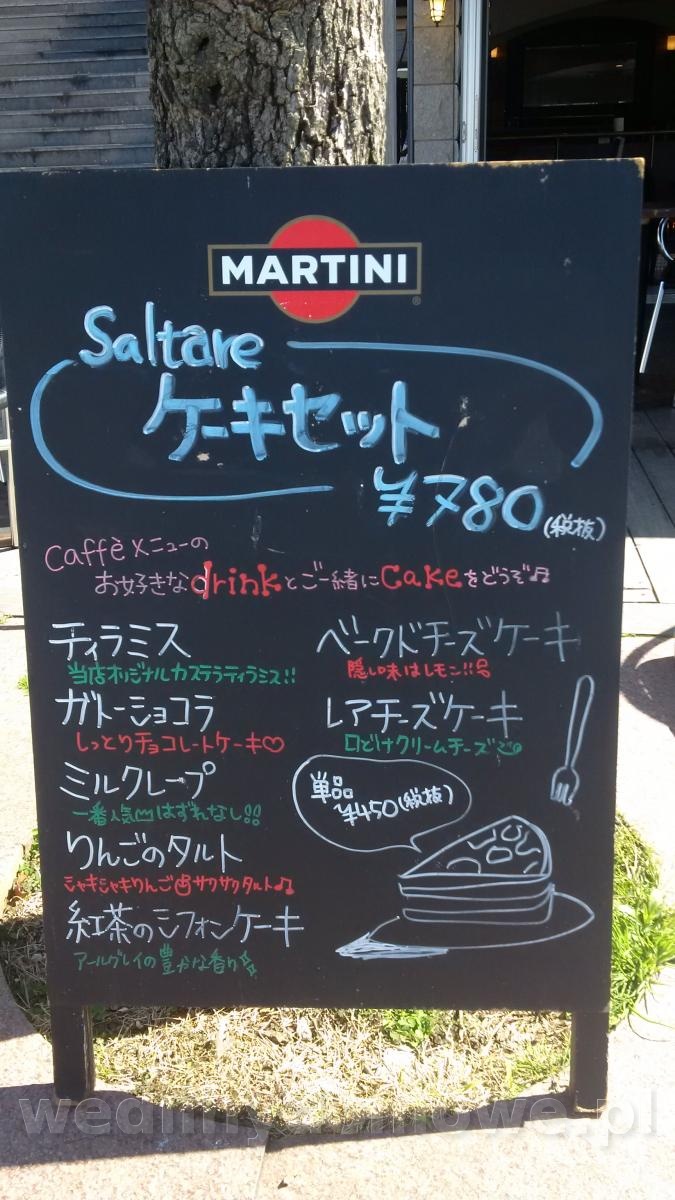 MARTINI
Saltare
ケーキセット
¥780(税抜)
Caffèメニューの
お好きなdrinkとご一緒にCakeをどうぞ♫
ティラミス
当店オリジナルカステラティラミス!!
ガトーショコラ
しっとりチョコレートケーキ♡
ミルクレープ
一番人気はずれなし!!
りんごのタルト
シャキシャキりんごサクサクタルト♫
紅茶のシフォンケーキ
アールグレイの豊かな香り
ベークドチーズケーキ
隠し味はレモン!!
レアチーズケーキ
口どけクリームチーズ
単品
¥450(税抜)